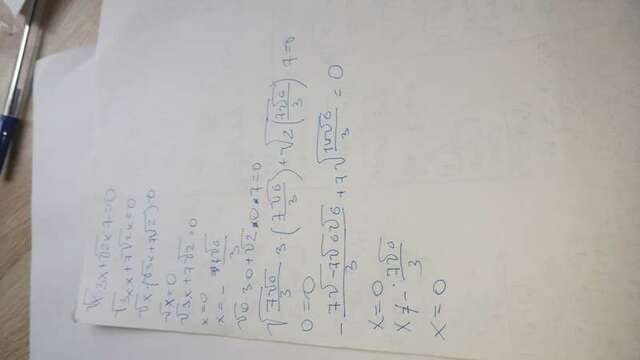 √x 3x+√2x 7=0
√3xx+7√2x=0
√x·(√3x+7√2)=0
√x=0
√3x+7√2=0
x=0
x=-7√6/3
√0·3·0+√2·0·7=0
√(7√6/3)·3·(7√6/3)+√(2(7√6/3)) 7=0
0=0
-(7√-7√6√6)/3+7√(14√6/3)=0
x=0
x≠-7√6/3
x=0